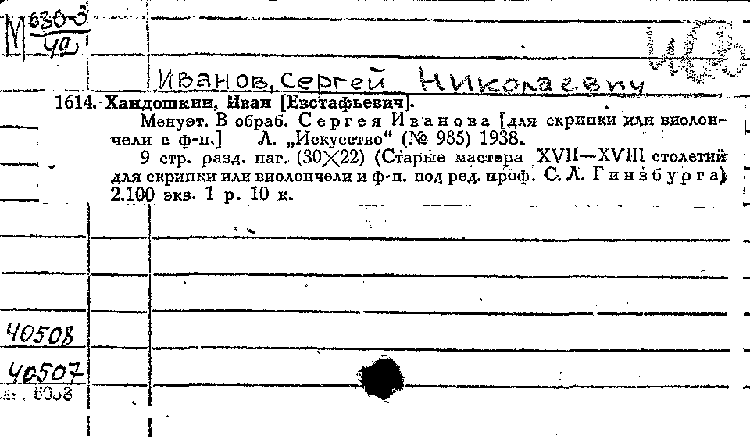 М 630-3
40
Иванов, Сергей Николаевич
1614. Хандошкин, Иван [Евстафьевич].
Менуэт. В обраб. Сергея Иванова [для скрипки или виолон-
чели с ф-п.] Л. „Искусство“ (№ 985) 1938.
9 стр. разд. паг. (30×22) (Старые мастера XVII—XVIII столетий
для скрипки или виолончели и ф-п. под ред. проф. С. Л. Гинзбурга).
2.100 экз. 1 р. 10 к.
40508
40507